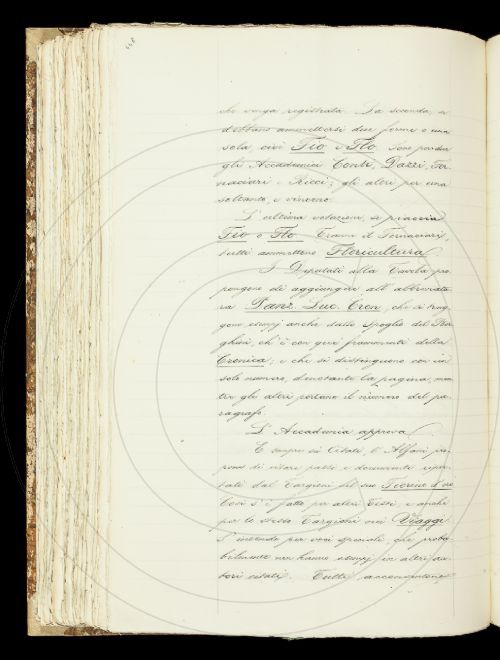 che venga registrata. La seconda, se
debbano ammettersi due forme o una
sola cioè Fio e Flo. Sono per due
gli Accademici Conti, Dazzi, For-
naciari e Ricci; gli altri per una
soltanto, e vincono.
L'ultima votazione, se piaccia
Fio o Flo. Tranne il Fornaciari
tutti ammettono Floricultura.
I Deputati alla Tavola pro-
pongono di aggiungere all'abbreviatu-
ra Panz. Luc. Cron., che si trag-
gono esempj anche dallo Spoglio del Bor-
ghini, ch'è con gran frammenti della
Cronica; e che si distinguono con un
solo numero, denotante la pagina, men-
tre gli altri portano il numero del pa-
ragrafo.
L'Accademia approva.
E sempre in Citati, l'Alfani pro-
pone di citare passi e documenti ripor-
tati dal Targioni
Così s'è fatto per altri Testi, e anche
per lo stesso Targioni nei Viaggi.
S'intende per voci speciali, che proba-
bilmente non hanno esempj in altri au-
tori citati. Tutti acconsentono